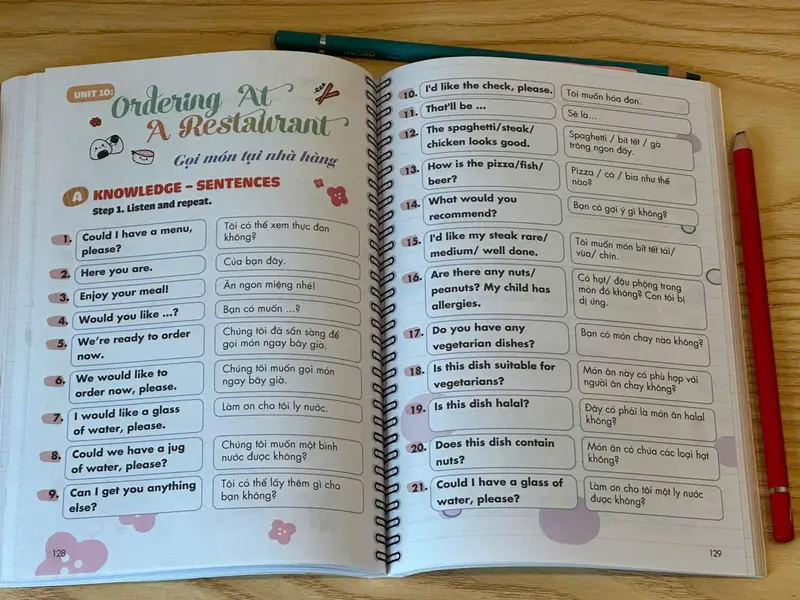 UNIT 10:
Ordering At
A Restaurant
Gọi món tại nhà hàng
A KNOWLEDGE – SENTENCES
Step 1. Listen and repeat.
1. Could I have a menu,
please?
Tôi có thể xem thực đơn
không?
2. Here you are.
Của bạn đây.
3. Enjoy your meal!
Ăn ngon miệng nhé!
4. Would you like ...?
Bạn có muốn ...?
5. We're ready to order
now.
Chúng tôi đã sẵn sàng để
gọi món ngay bây giờ.
6. We would like to
order now, please.
Chúng tôi muốn gọi món
ngay bây giờ.
7. I would like a glass
of water, please.
Làm ơn cho tôi ly nước.
8. Could we have a jug
of water, please?
Chúng tôi muốn một bình
nước được không?
9. Can I get you anything
else?
Tôi có thể lấy thêm gì cho
bạn không?
128
10. I'd like the check, please.
Tôi muốn hóa đơn.
11. That'll be ...
Sẽ là...
12. The spaghetti/steak/
chicken looks good.
Spaghetti / bít tết / gà
trông ngon đấy.
13. How is the pizza/fish/
beer?
Pizza / cá / bia như thế
nào?
14. What would you
recommend?
Bạn có gợi ý gì không?
15. I'd like my steak rare/
medium/ well done.
Tôi muốn món bít tết tái/
vừa/ chín.
16. Are there any nuts/
peanuts? My child has
allergies.
Có hạt/ đậu phộng trong
món đó không? Con tôi bị
dị ứng.
17. Do you have any
vegetarian dishes?
Bạn có món chay nào không?
18. Is this dish suitable for
vegetarians?
Món ăn này có phù hợp với
người ăn chay không?
19. Is this dish halal?
Đây có phải là món ăn halal
không?
20. Does this dish contain
nuts?
Món ăn có chứa các loại hạt
không?
21. Could I have a glass of
water, please?
Làm ơn cho tôi một ly nước
được không?
129